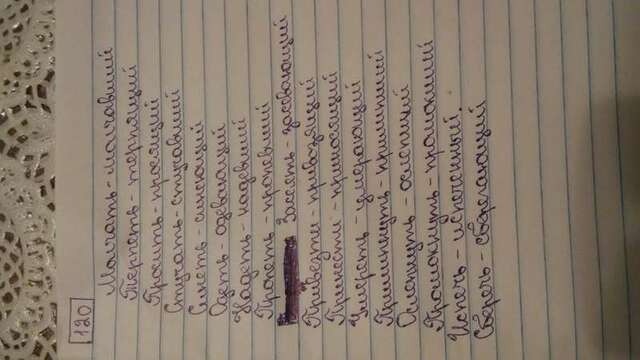 120
Молчать - молчавший
Терпеть - терпящий
Просить - просящий
Стучать - стучавший
Синеть - синеющий
Одеть - одевающий
Надеть - надевший
Пропеть - пропевший
Засеять - засевающий
Привезти - привозящий
Принести - приносящий
Умереть - умирающий
Примкнуть - примкнивший
Ослепнуть - ослепший
Промокнуть - промокший
Испечь - испеченный.
Сберечь - сберегающий